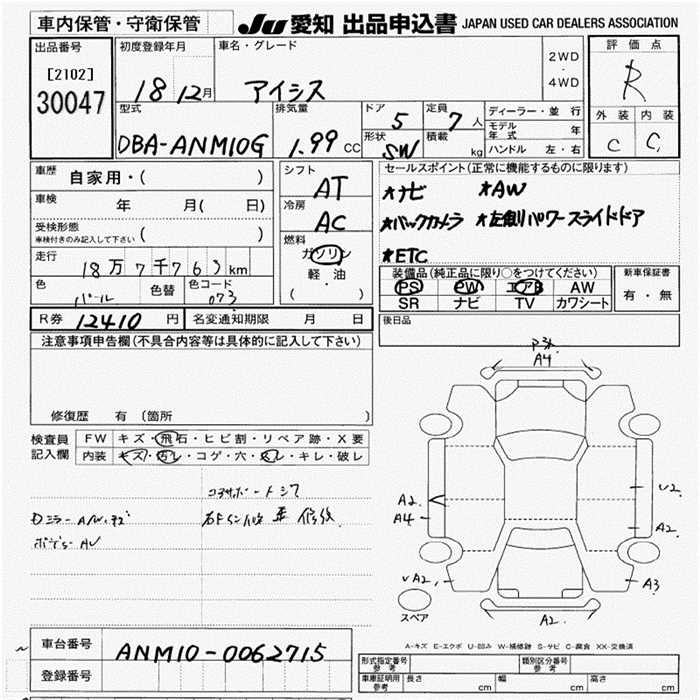 車内保管・守衛保管
JU 愛知 出品申込書 JAPAN USED CAR DEALERS ASSOCIATION
出品番号
[2102]
30047
初度登録年月
18 12月
車名・グレード
アイシス
2WD
・
4WD
評価点
R
外装 内装
C C
型式
DBA-ANM10G
排気量
1.99 CC
ドア
5
定員
7 人
形状
SW
積載
kg
ディーラー・並行
モデル年式 年
ハンドル 左・右
車歴
自家用・( )
車検
年 月( 日)
受検形態
車検付きのみ記入して下さい ( )
走行
18万7千763km
色
パール
色替
色コード
073
シフト
AT
冷房
AC
燃料
ガソリン
軽・油
( )
セールスポイント(正常に機能するものに限ります)
*ナビ *AW
*バックカメラ *左側パワースライドドア
*ETC
装備品(純正品に限り○をつけてください)
PS PW エアB AW
SR ナビ TV カワシート
新車保証書
有・無
R券 12410 円
名変通知期限 月 日
後日品
注意事項申告欄(不具合内容等は具体的に記入して下さい)
修復歴 有(箇所 )
検査員記入欄
FW キズ・飛石・ヒビ割・リペア跡・X要
内装 キズ・汚レ・コゲ・穴・スレ・キレ・破レ
A4
A2
A4
U2
A2
A2
A3
A2
スペア
A-キズ E-エクボ U-凹み W-補修跡 S-サビ C-腐食 XX-交換済
車台番号
ANM10-0062715
登録番号
形式指定番号 参考
類別区分番号 参考
車庫証明用 参考
長さ cm 幅 cm 高さ cm